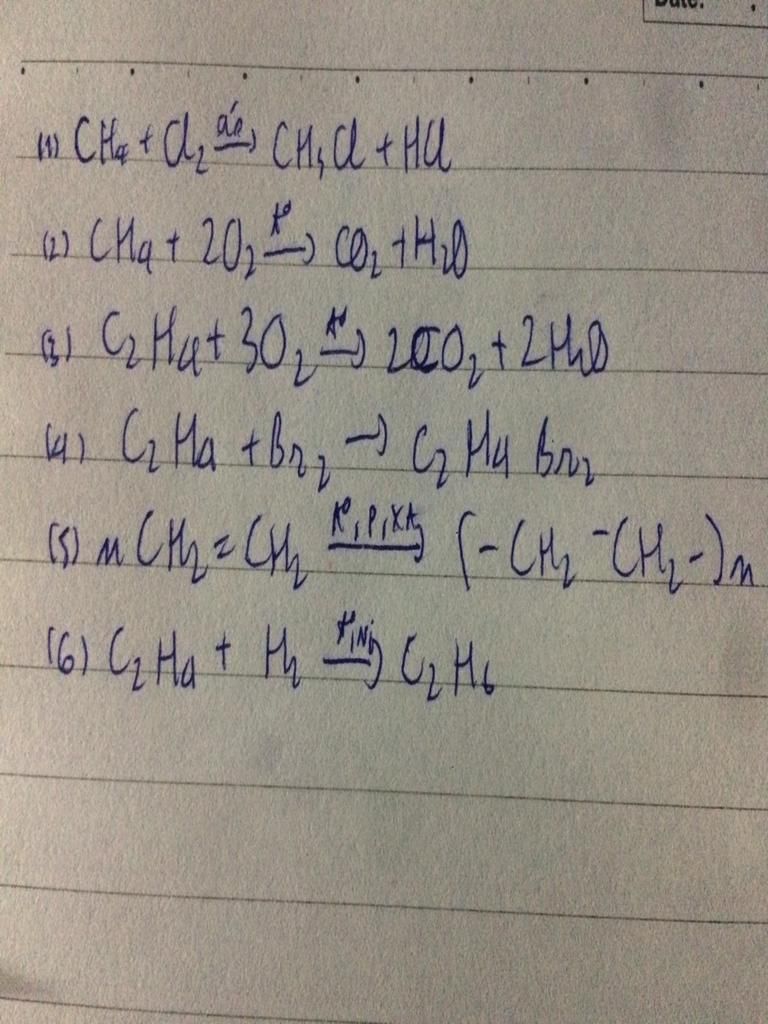 Date:
(1) CH₄ + Cl₂ →(as) CH₃Cl + HCl
(2) CH₄ + 2O₂ →(t°) CO₂ + H₂O
(3) C₂H₄ + 3O₂ →(t°) 2CO₂ + 2H₂O
(4) C₂H₄ + Br₂ → C₂H₄Br₂
(5) nCH₂=CH₂ →(t°, P, xt) (-CH₂-CH₂-)n
(6) C₂H₄ + H₂ →(t°, Ni) C₂H₆